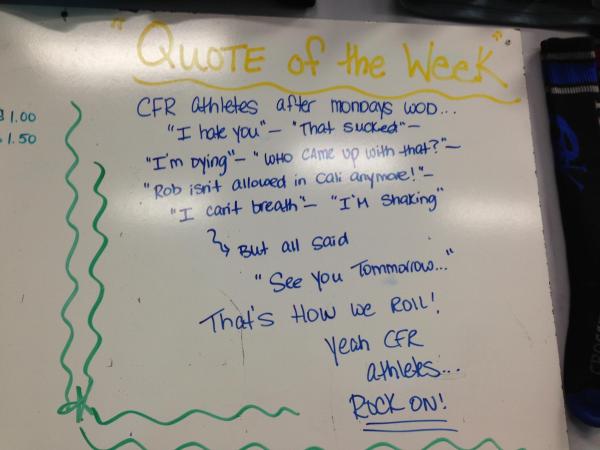 "QUOTE of the Week"
CFR athletes after mondays WOD...
"I hate you" - "That sucked" -
"I'm Dying" - "WHO CAME UP with that?" -
"Rob isn't allowed in Cali anymore!" -
"I can't breath" - "I'M SHAKING"
But all said
"See You Tommorrow..."
That's How we ROLL!
Yeah CFR
athletes...
ROCK ON!
$1.00
1.50